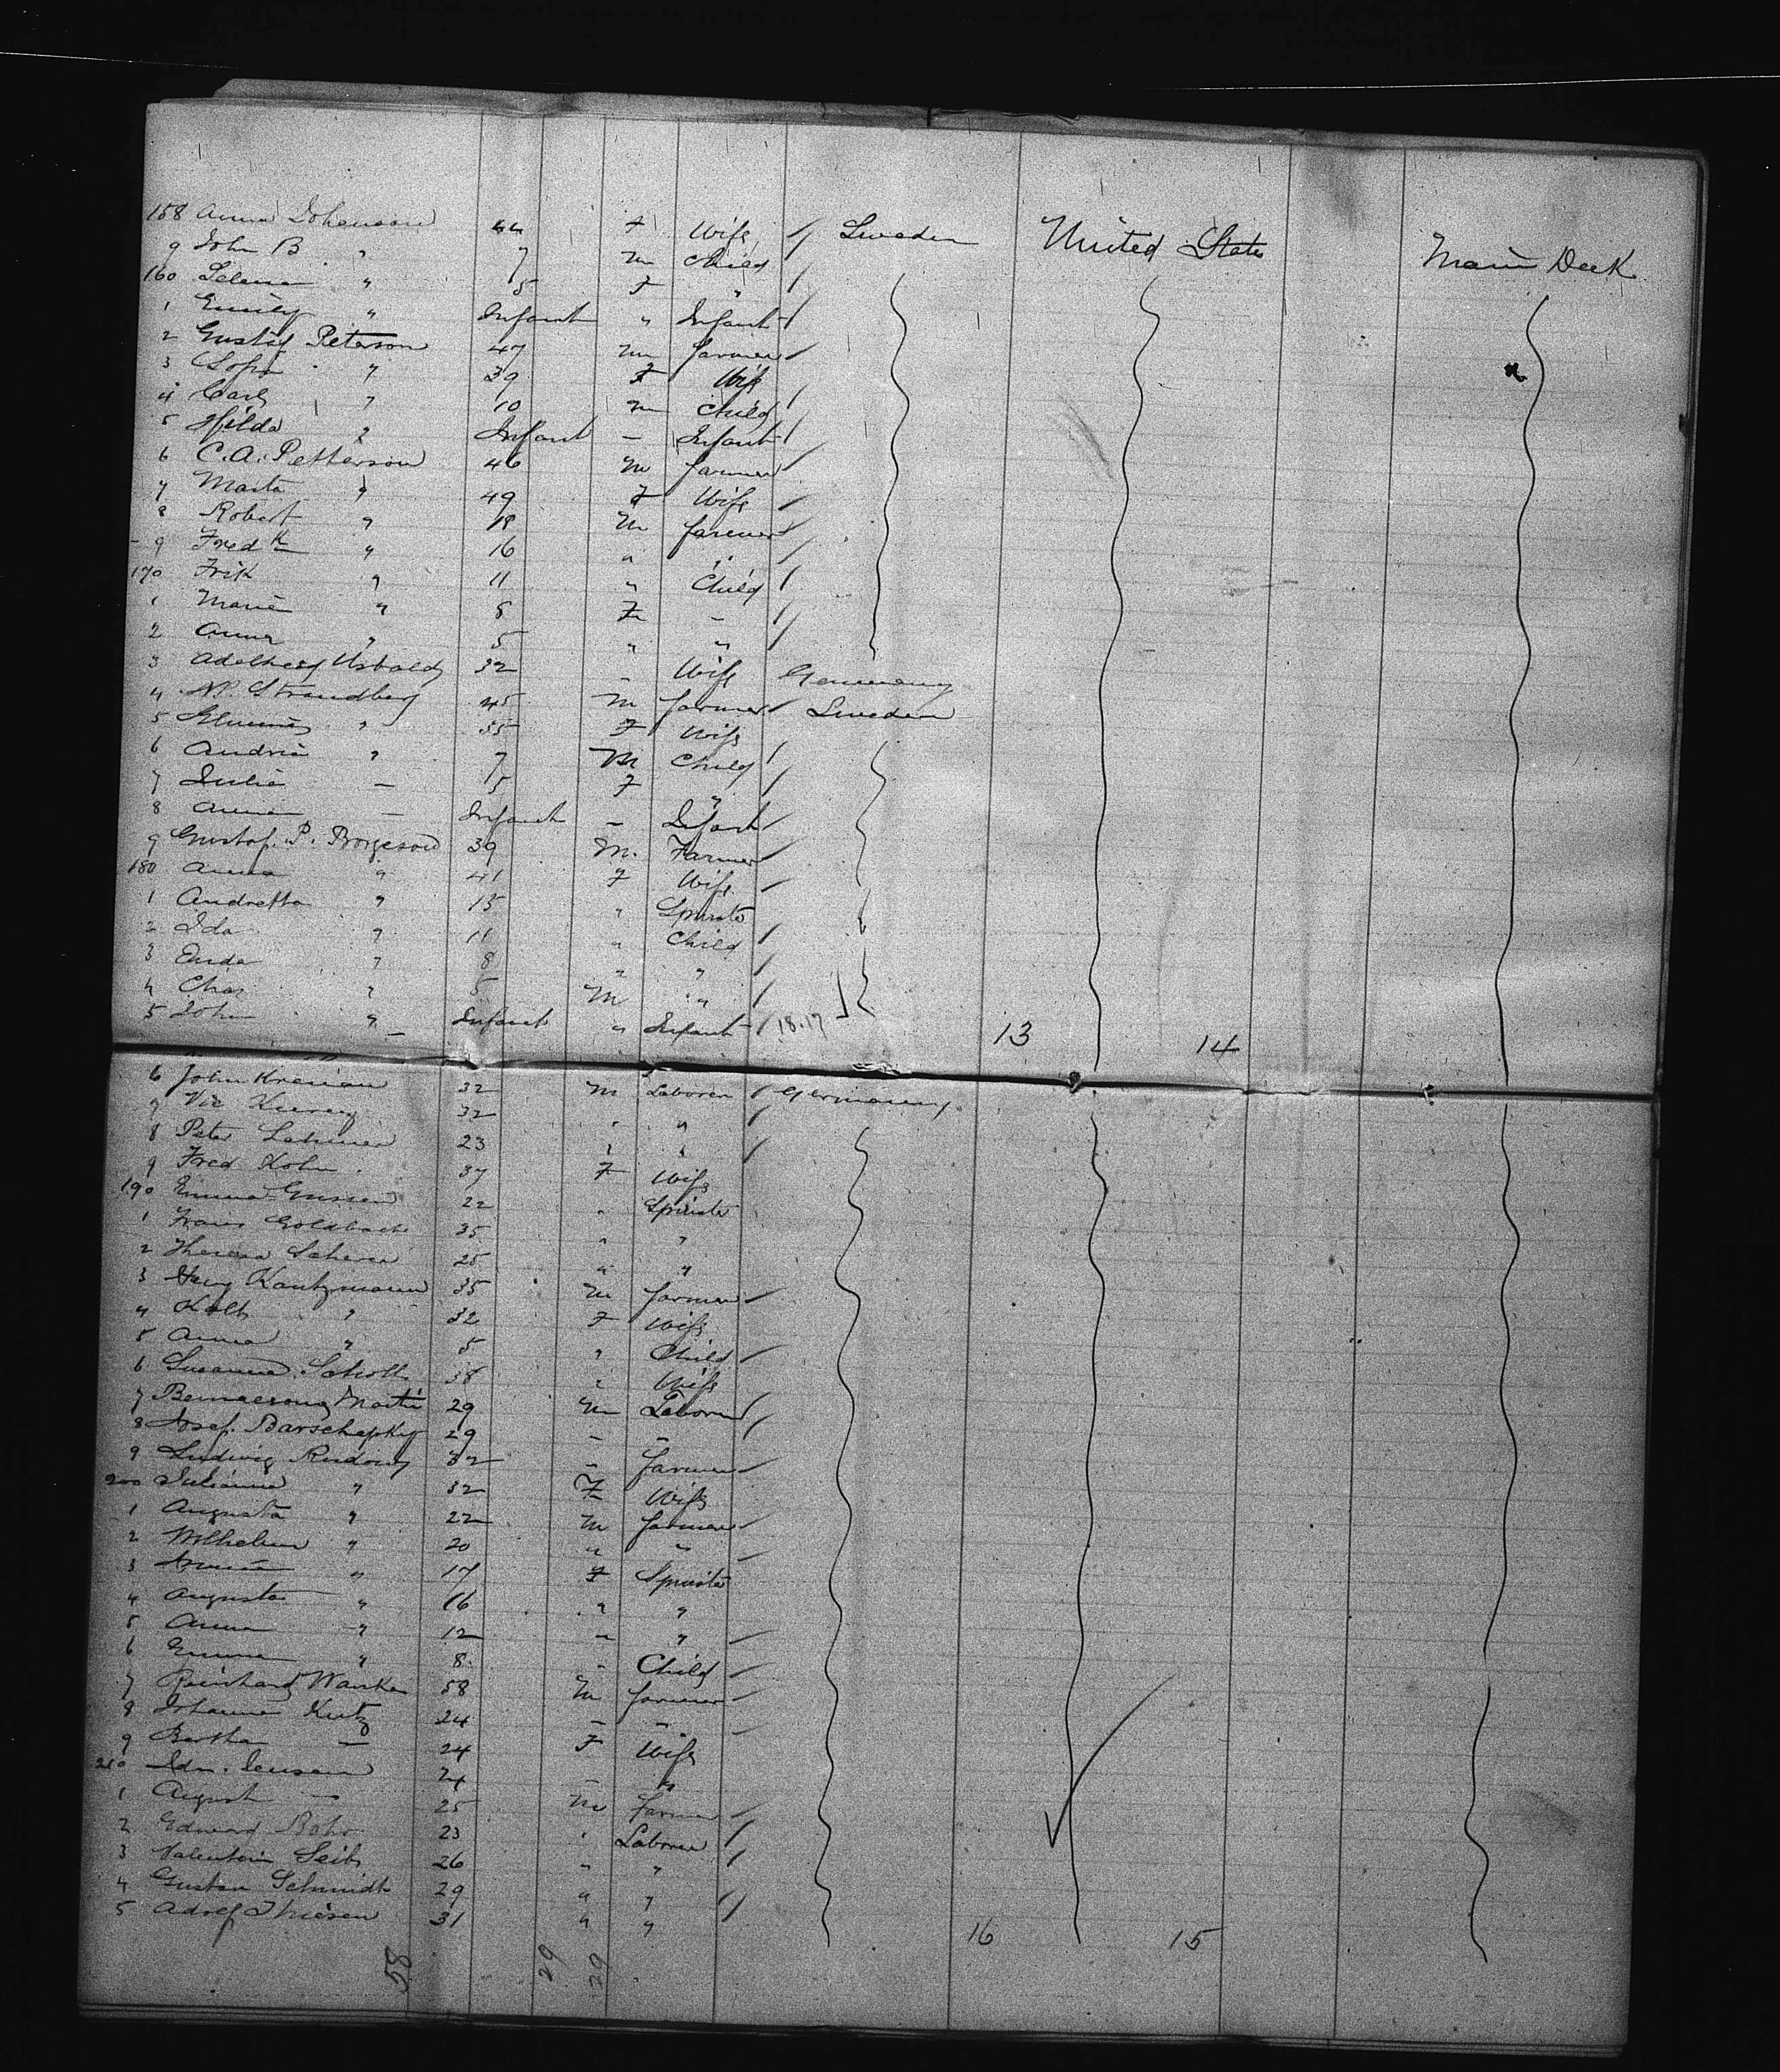 158 Anna Johanson 44 F Wife / Sweden United States Main Deck
9 John B. " 7 M Child /
160 Selma " 5 F " /
1 Emily " Infant " Infant /
2 Gustaf Peterson 47 M farmer /
3 Sofia " 39 F Wife
4 Carl " 10 M Child /
5 Hilda " Infant - Infant /
6 C. A. Petterson 46 M farmer /
7 Marta " 49 F Wife /
8 Robert " 18 M farmer /
9 Fredk " 16 " " /
170 Frik " 11 " Child /
1 Marie " 8 F - /
2 Anna " 5 " " /
3 Adelheid 32 - Wife Germany
4 N. P. Strandberg 45 M farmer / Sweden
5 " 35 F Wife
6 Andrie " 7 M Child /
7 Julia - 5 F " /
8 Anna - Infant - Infant /
9 Gustaf. P. Borgeson 39 M. Farmer /
180 Anna " 41 F Wife /
1 Andretta " 15 " Spinster
2 Ida " 11 " Child /
3 " 8 " " /
4 Chas " 5 M " /
5 John " Infant " Infant / 18.17 13 14
6 John 32 M Laborer / Germany
7 32 " " /
8 Peter 23 " " /
9 Fred Kohn 37 F Wife
190 Emma 22 " Spinster
1 Goldbach 35 " "
2 Theresa Scherer 25 " "
3 Kautzmann 35 M farmer /
4 Kath " 32 F Wife
5 Anna " 5 " Child /
6 Susanna Scholl 58 " Wife
7 Martin 29 M Laborer /
8 Josef. 29 - - /
9 Ludwig 32 - farmer /
200 Julianna " 32 F Wife
1 Augusta " 22 M farmer /
2 Wilhelm " 20 " " /
3 " 17 F Spinster
4 Augusta " 16 " "
5 Anna " 12 - " /
6 Emma " 8 - Child /
7 Reinhard 58 M farmer /
8 Johanna Kutz 24 - - /
9 Bertha - 24 F Wife
210 Jensen 24 - "
1 August - 25 M farmer /
2 Edward 23 " Laborer /
3 Valentin Seib 26 " " /
4 Gustav Schmidt 29 " " /
5 Adolf Thiesen 31 " " 16 15
58 29 29